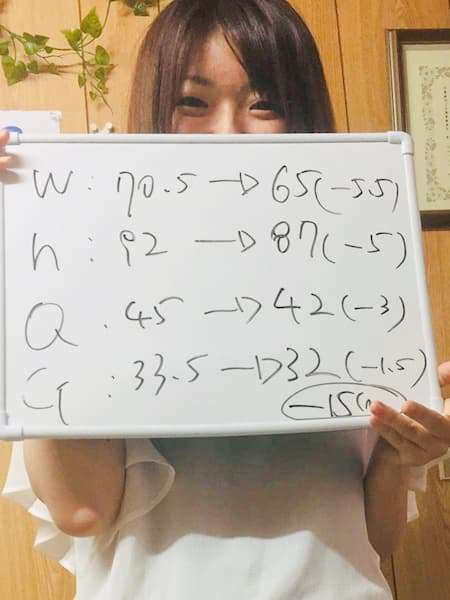 W : 70.5 → 65 (-5.5)
h : 92 → 87 (-5)
Q . 45 → 42 (-3)
G : 33.5 → 32 (-1.5)